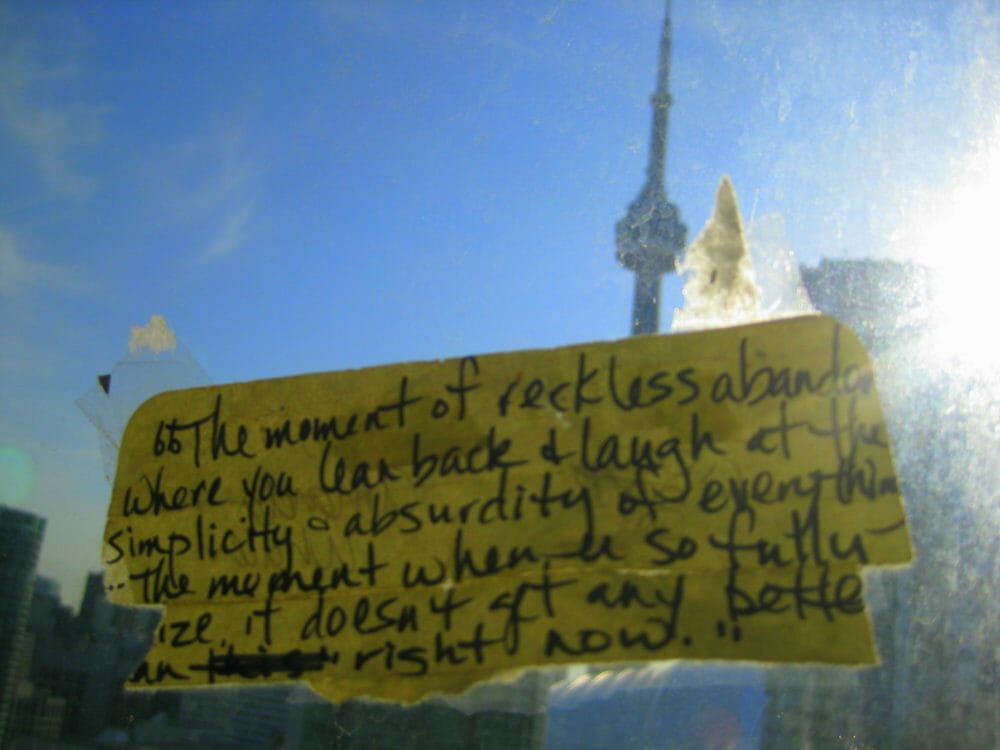 "The moment of reckless abandon
where you lean back & laugh at the
simplicity - absurdity of everythin
.. The moment when u so fully
ize, it doesn't get any bette
an right now."